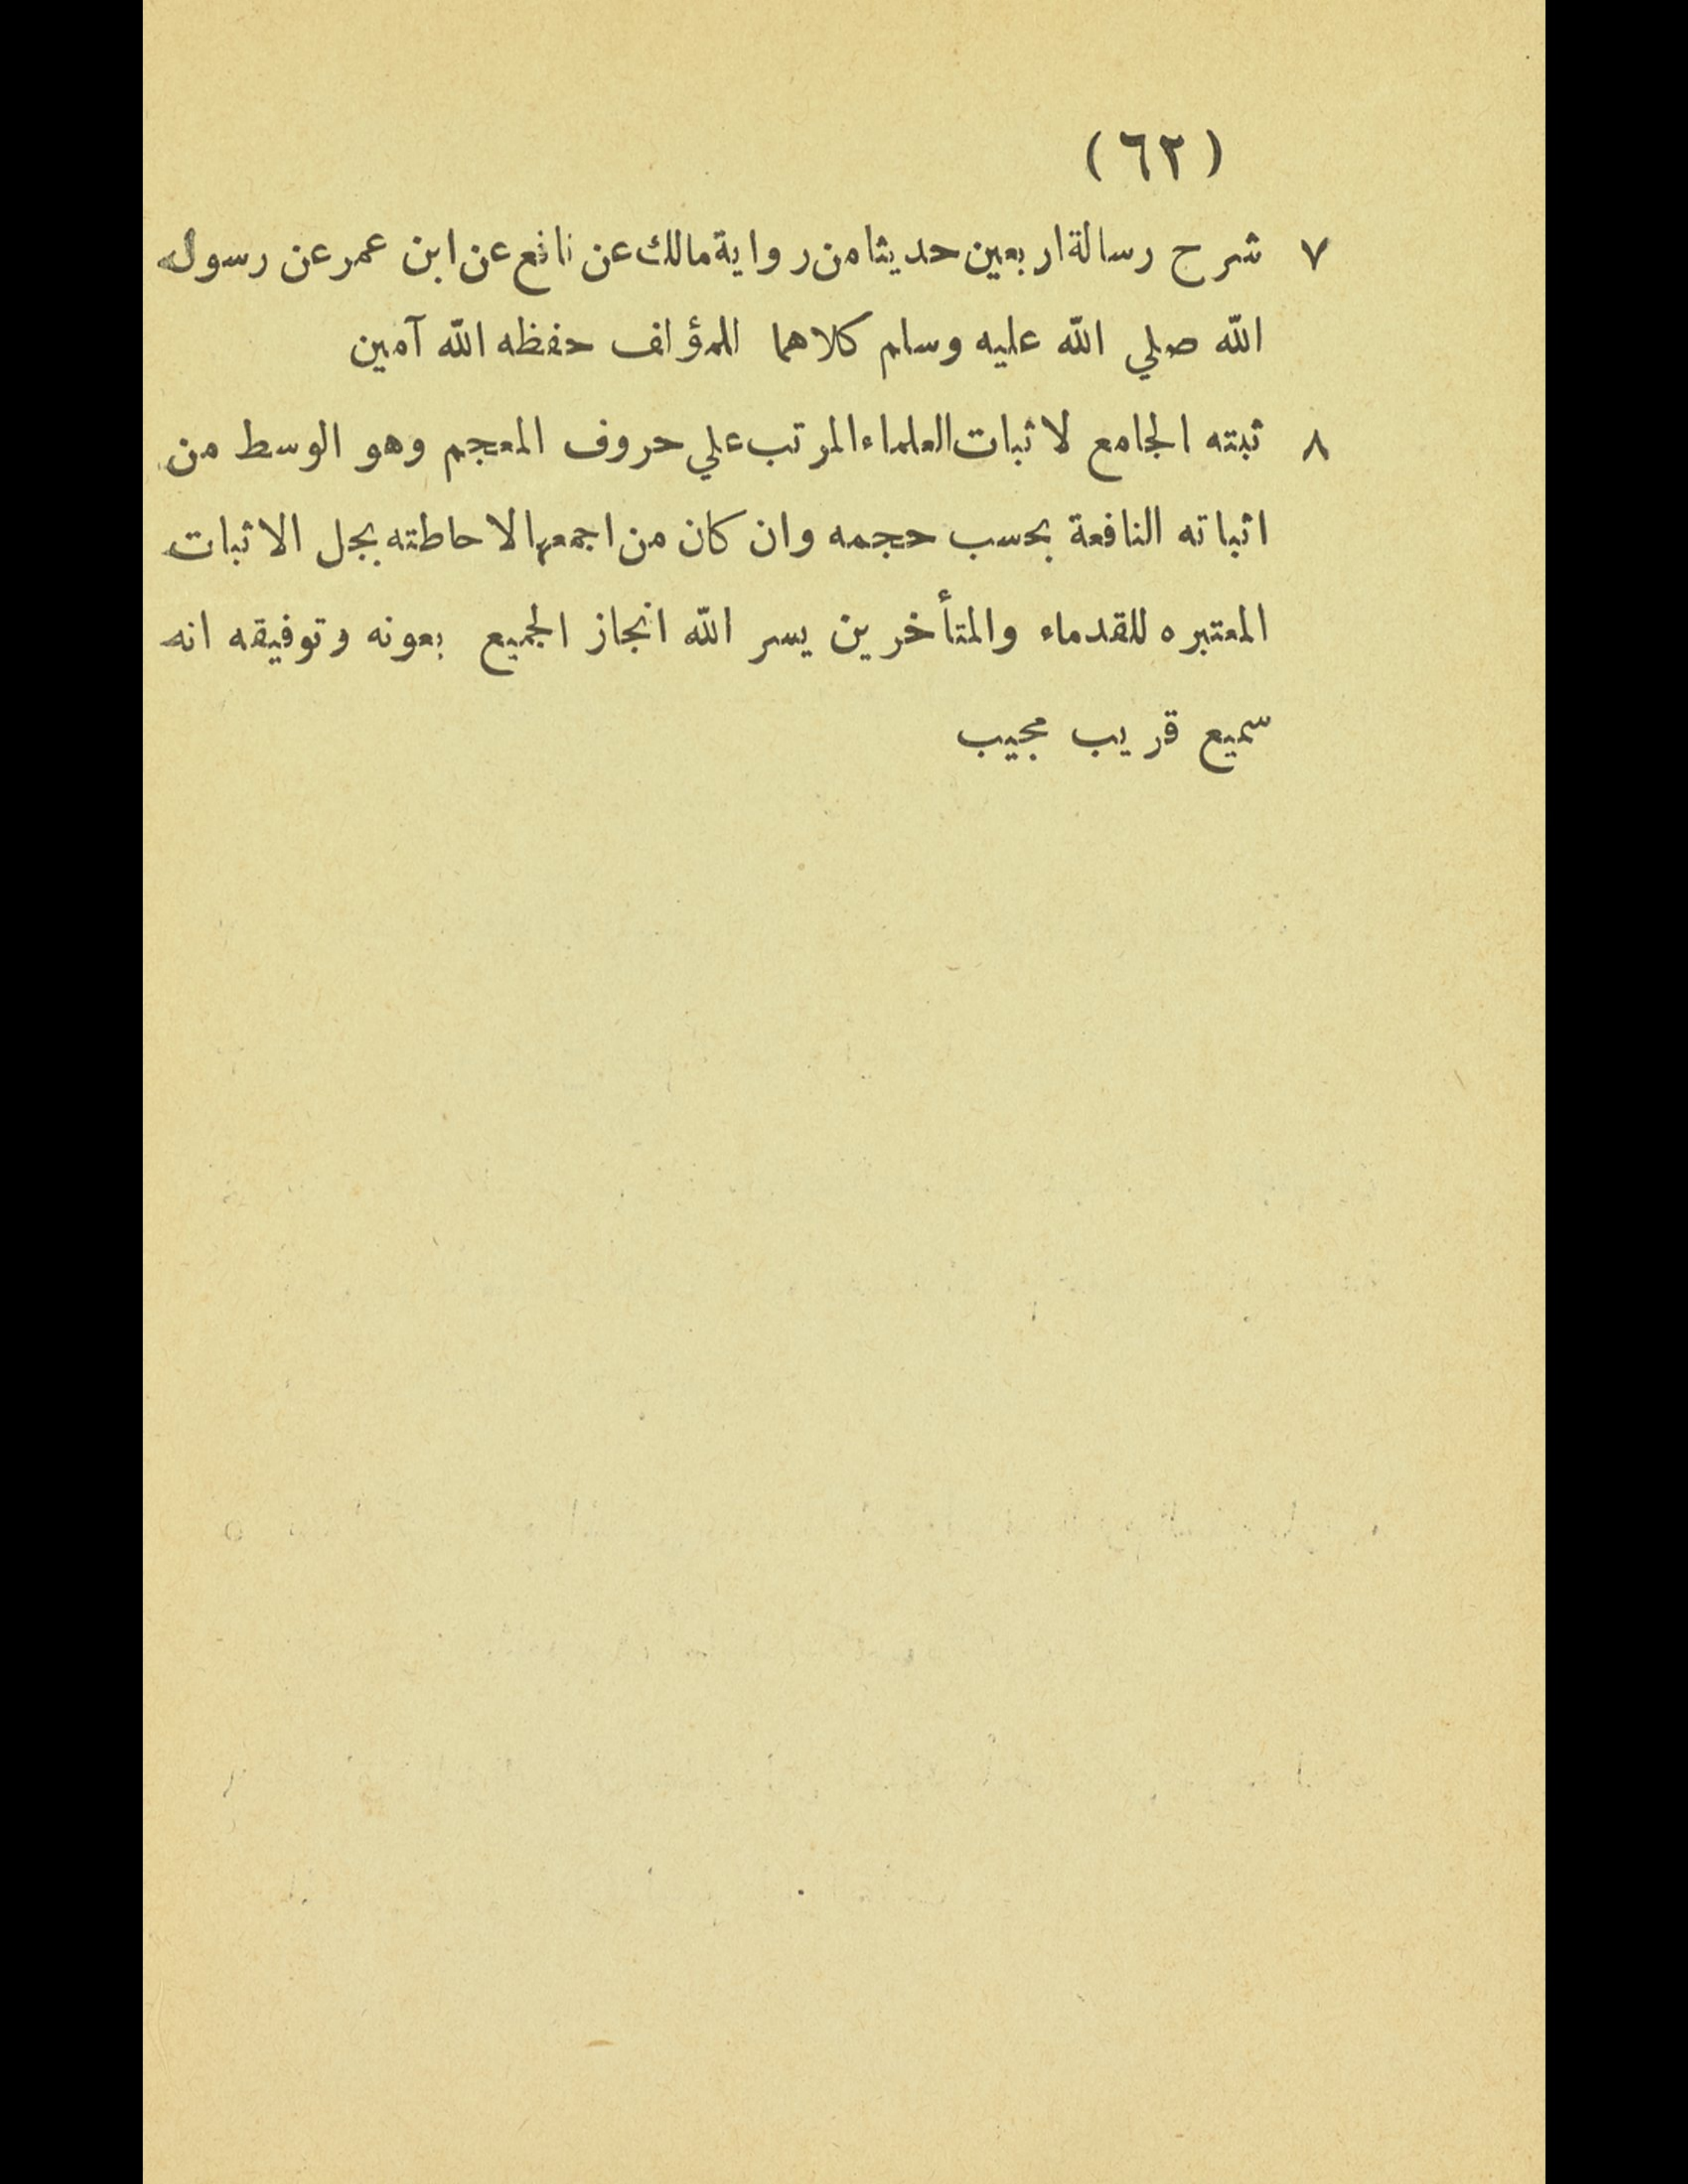 (٦٢)
٧ شرح رسالة اربعين حديثا من رواية مالك عن نافع عن ابن عمر عن رسول
الله صلي الله عليه وسلم كلاهما للمؤلف حفظه الله آمين
٨ ثبته الجامع لاثبات العلماء المرتب علي حروف المعجم وهو الوسط من
اثباته النافعة بحسب حجمه وان كان من اجمعها لاحاطته بجل الاثبات
المعتبره للقدماء والمتأخرين يسر الله انجاز الجميع بعونه وتوفيقه انه
سميع قريب مجيب